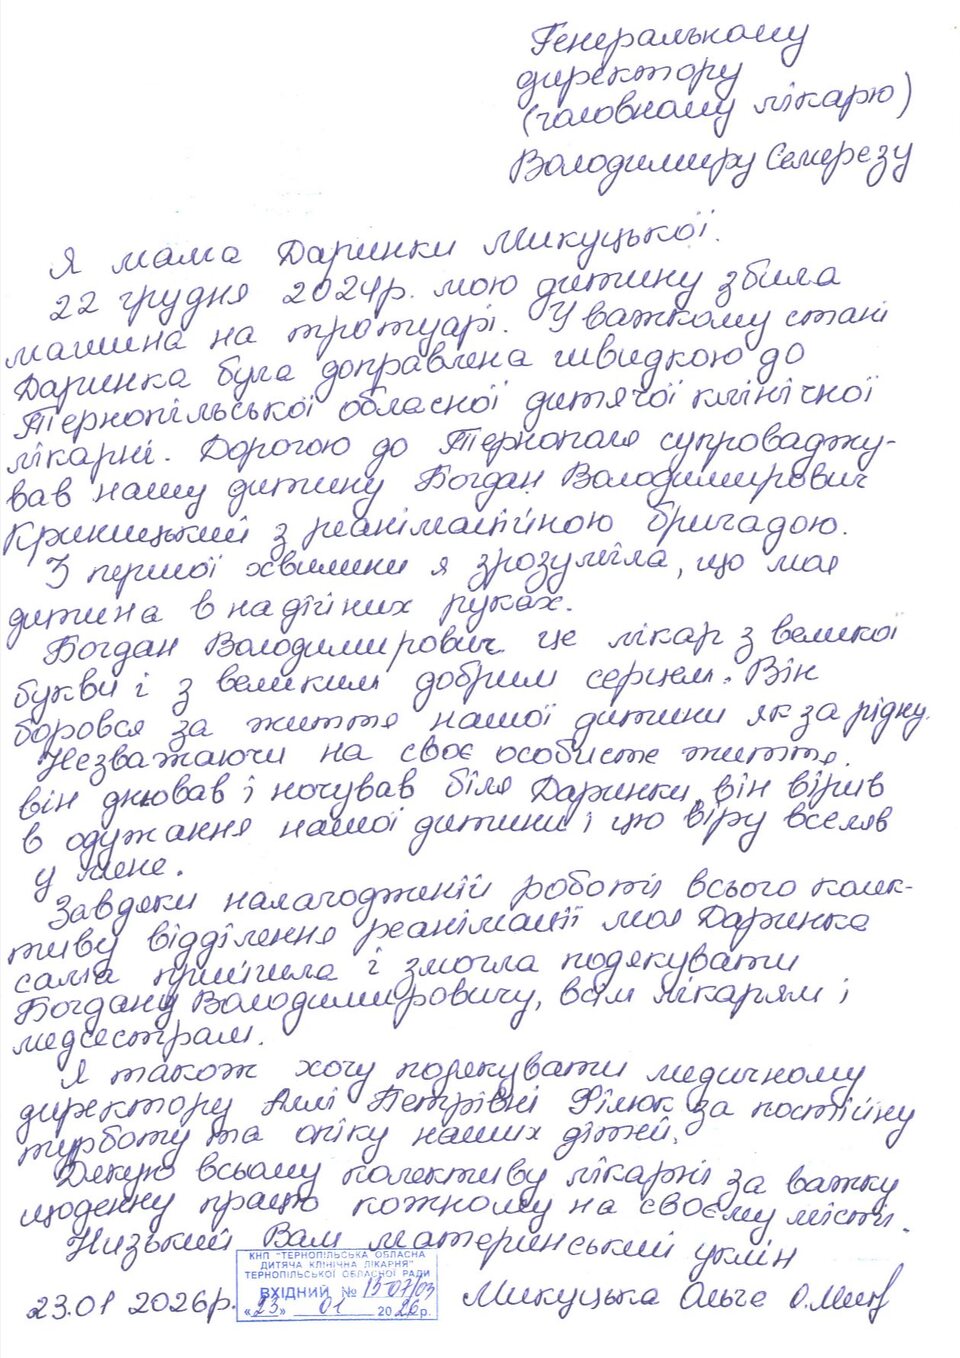 Генеральному
директору
(головному лікарю)
Володимиру Семерезу
Я мама Даринки Микуцької.
22 грудня 2024р. мою дитину збила
машина на тротуарі. У важкому стані
Даринка була доправлена швидкою до
Тернопільської обласної дитячої клінічної
лікарні. Дорогою до Тернополя супроваджу-
вав нашу дитину Богдан Володимирович
Криницький з реанімаційною бригадою.
З першої хвилини я зрозуміла, що моя
дитина в надійних руках.
Богдан Володимирович це лікар з великої
букви і з великим добрим серцем. Він
боровся за життя нашої дитини як за рідну.
Незважаючи на своє особисте життя,
він днював і ночував біля Даринки, він вірив
в одужання нашої дитини і цю віру вселяв
у мене.
Завдяки налагодженій роботі всього колек-
тиву відділення реанімації моя Даринка
сама прийшла і змогла подякувати
Богдану Володимировичу, всім лікарям і
медсестрам.
Я також хочу подякувати медичному
директору Аллі Петрівні Філюк за постійну
турботу та опіку наших дітей.
Дякую всьому колективу лікарні за важку
щоденну працю кожному на своєму місті.
Низький Вам материнський уклін
КНП "ТЕРНОПІЛЬСЬКА ОБЛАСНА
ДИТЯЧА КЛІНІЧНА ЛІКАРНЯ"
ТЕРНОПІЛЬСЬКОЇ ОБЛАСНОЇ РАДИ
ВХІДНИЙ № 15-07/03
«23» 01 2026р.
23.01 2026р. Микуцька Ольга